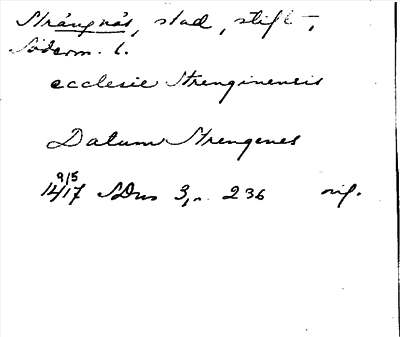 Strängnäs, stad, stift –,
Söderm. l.
ecclesie Strenginensis
Datum Strengenes
9/5
1417 SDns 3, n. 236 orig.